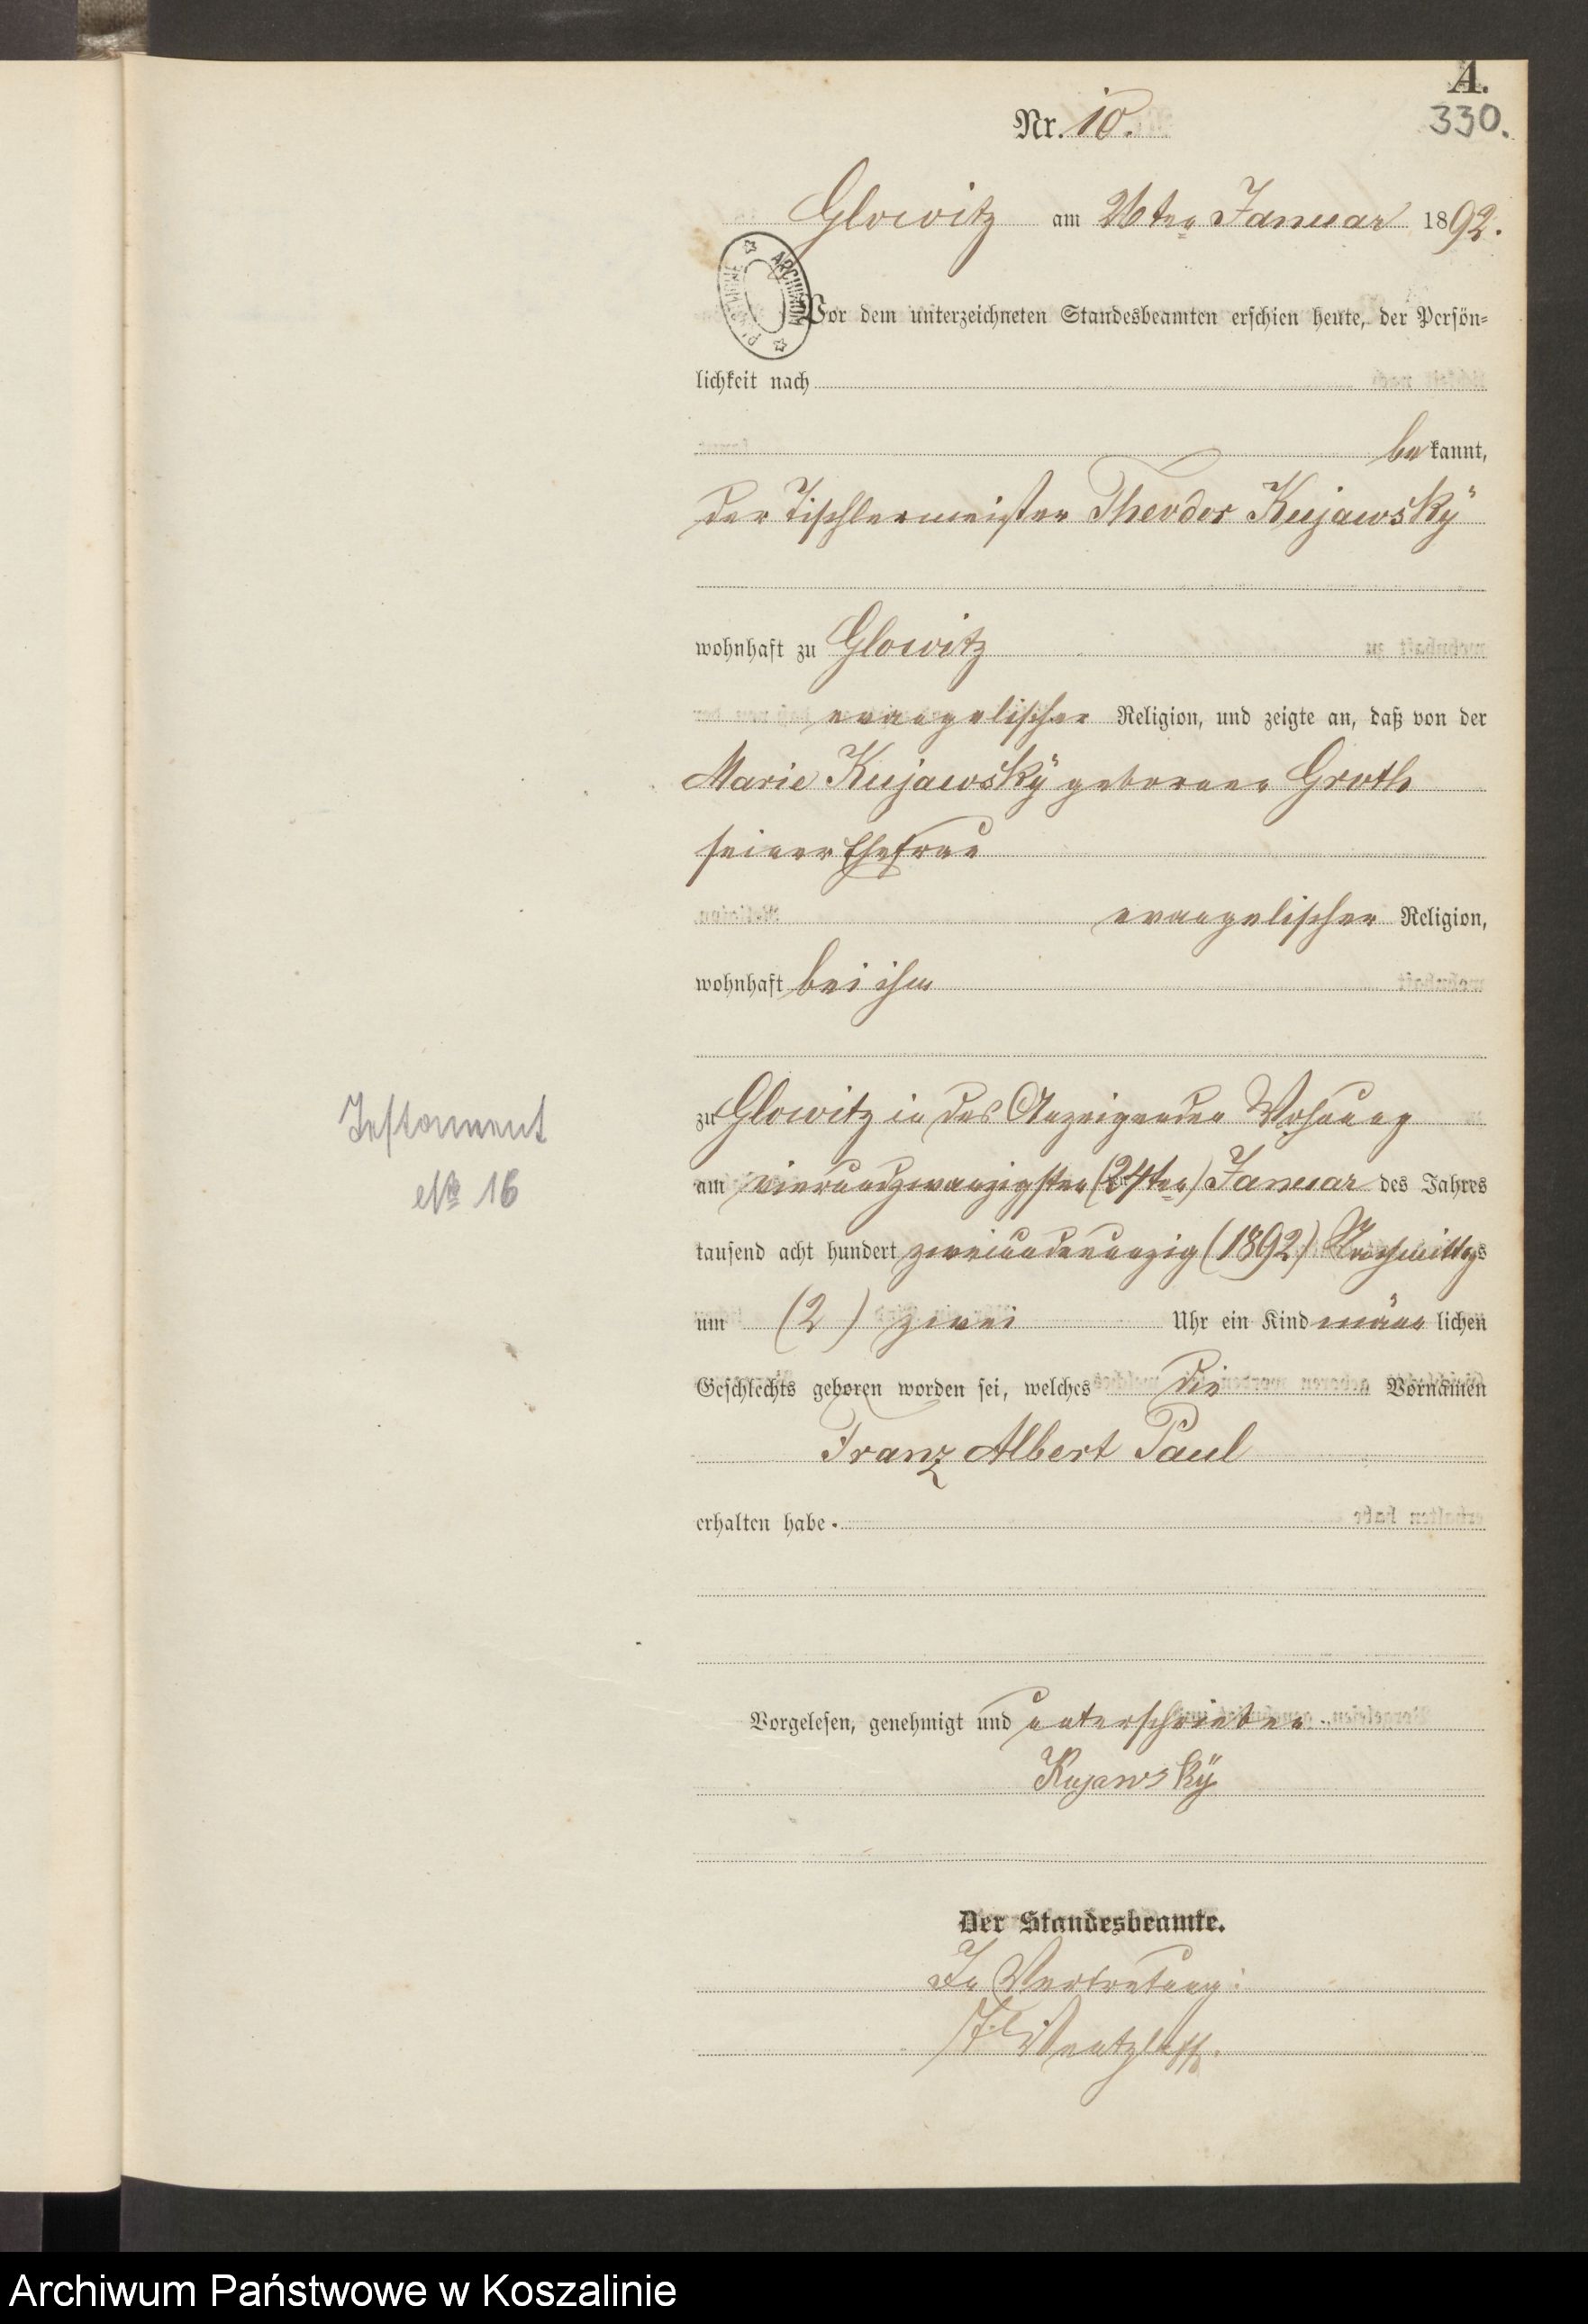 A.
330.
Nr. 10.
Glowitz am 26ten Januar 1892.
ARCHIWUM
Vor dem unterzeichneten Standesbeamten erschien heute, der Persön-
lichkeit nach
bekannt,
der Tischlermeister Theodor Kujawsky
wohnhaft zu Glowitz
evangelischer Religion, und zeigte an, daß von der
Marie Kujawsky geborner Groth
seiner Ehefrau
evangelischer Religion,
wohnhaft bei ihm
zu Glowitz in des Anzeigenden Wohnung
am vierundzwanzigsten (24ten) Januar des Jahres
tausend acht hundert zweiundneunzig (1892) Nachmittags
um (2) zwei Uhr ein Kind männlichen
Geschlechts geboren worden sei, welches die Vornamen
Franz Albert Paul
erhalten habe.
Testament
No 16
Vorgelesen, genehmigt und unterschrieben.
Kujawsky
Der Standesbeamte.
In Vertretung:
Wentzlaff.
Archiwum Państwowe w Koszalinie